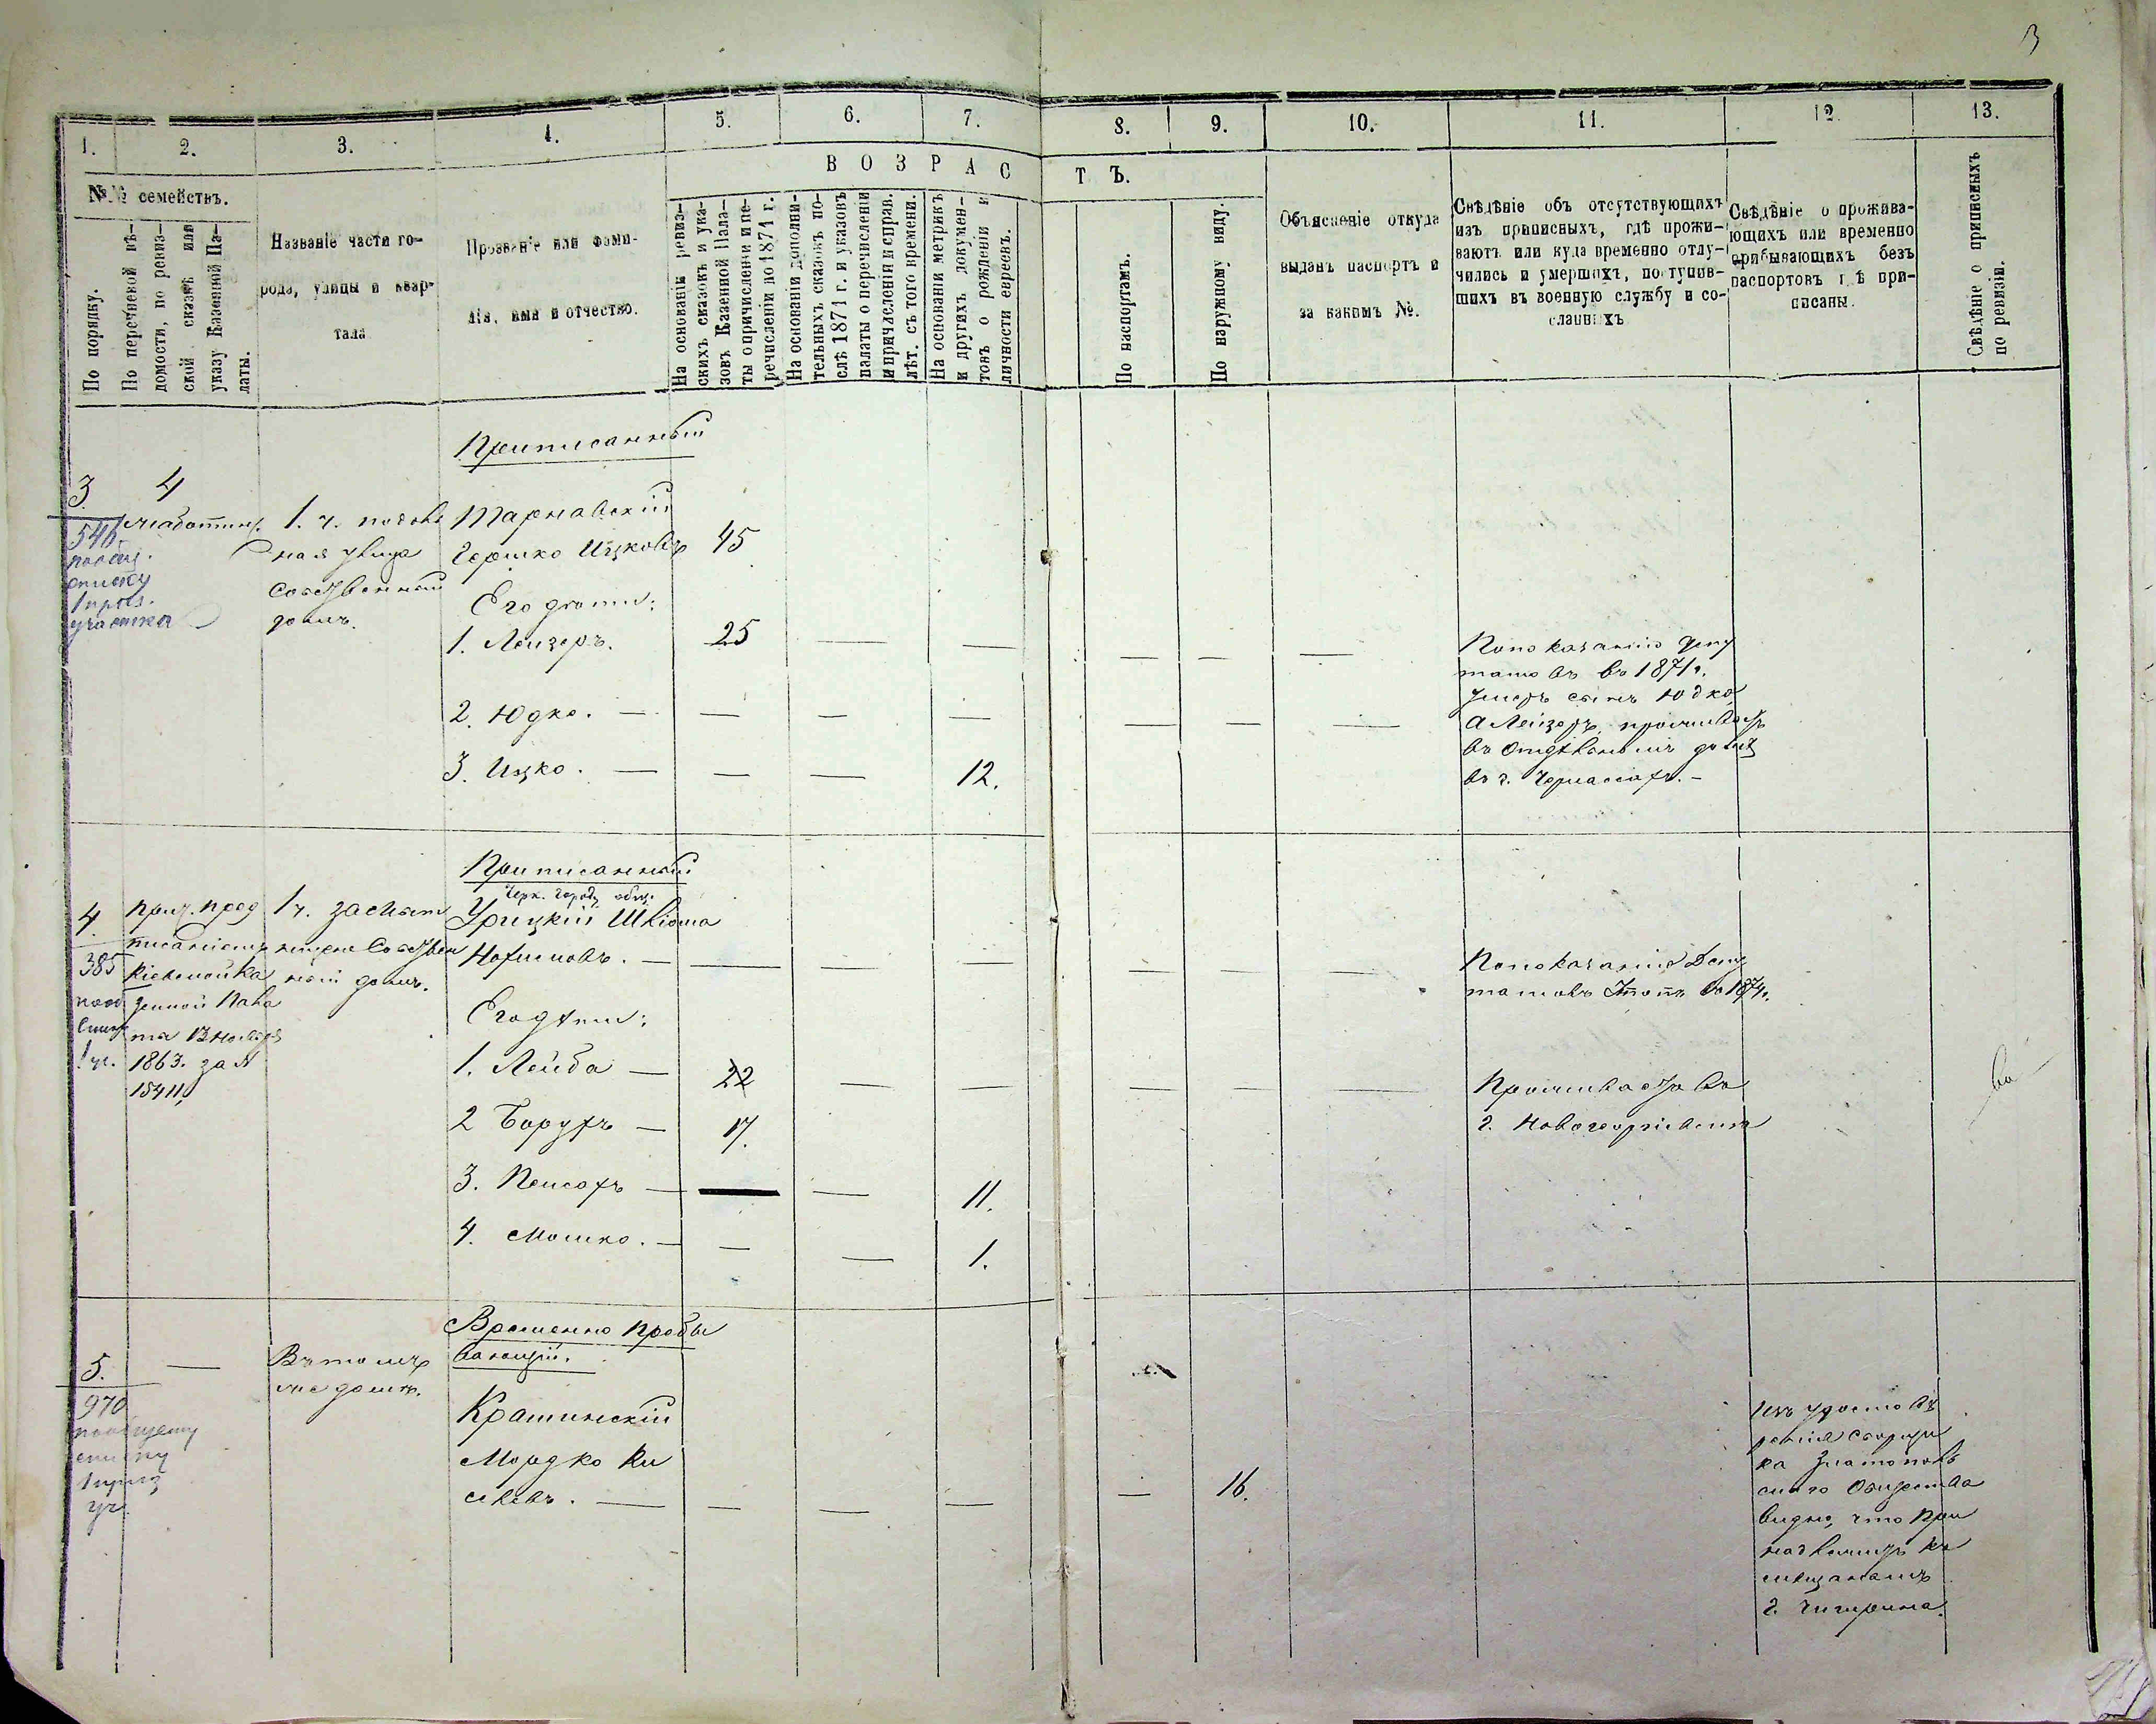 3
1. 2. 3. 4. 5. 6. 7. 8. 9. 10. 11. 12. 13.
№№ семействъ.
По порядку.
По перечневой вѣ-
домости, по ревиз-
ской сказкѣ или
указу Казенной Па-
латы.
Названіе части го-
рода, улицы и квар-
тала
Прозваніе или фами-
лія, имя и отчество.
ВОЗРАСТЪ.
На основаніи ревиз-
скихъ сказокъ и ука-
зовъ Казенной Пала-
ты о причисленіи и пе-
речисленіи по 1871 г.
На основаніи дополни-
тельныхъ сказокъ по-
слѣ 1871 г. и указовъ
палаты о перечисленіи
и причисленіи и справ.
лѣт. съ того времени.
На основаніи метрикъ
и другихъ докумен-
товъ о рожденіи и
личности евреевъ.
По паспортамъ.
По наружному виду.
Объясненіе откуда
выданъ паспортъ и
за какимъ №.
Свѣдѣніе объ отсутствующихъ
изъ приписныхъ, гдѣ прожи-
ваютъ или куда временно отлу-
чились и умершихъ, поступив-
шихъ въ военную службу и со-
сланныхъ
Свѣдѣніе о прожива-
ющихъ или временно
прибывающихъ безъ
паспортовъ гдѣ при-
писаны.
Свѣдѣніе о приписныхъ
по ревизіи.
Приписанный
3 4
546
списку
1 приз.
участка
1. ч.
ная улица
собственный
домъ.
Тарнавскій
Гершко Ицковъ 45
Его дѣти:
1. Лейзеръ. 25 — — — — —
2. Юдко. — — — — — — —
3. Ицко. — — — 12.
По показанію депу
татовъ въ 1871 г.
умеръ сынъ Юдко,
а Лейзеръ, проживаетъ
въ отдѣльномъ домѣ
въ г. Черкассахъ. —
Приписанный
Черк. город. общ.
4.
385
1 уч.
Прич. пред
писаніемъ
Кіевской Ка
зенной Пала
ты 13 Ноября
1863. за №
15411,
1 ч.
собствен
ный домъ.
Урицкій Шліома
Нахимовъ. — — — — — — —
Его дѣти:
1. Лейба — 22 — — — — —
2 Борухъ — 17.
3. Пейсахъ — — — 11.
4. Мошко. — — — 1.
По показанію Депу
татовъ въ 1874.
Проживаетъ въ
г. Новогеоргіевскѣ
Временно пребы
вающій.
5. —
970
по общему
списку
1 приз
уч.
Въ томъ
же домѣ.
Крашинскій
Мордко Ки
сілевъ. — — — — — 16.
Изъ удостовѣ
ренія сборщи
ка Златополь
скаго Общества
видно, что при
надлежитъ къ
мѣщанамъ
г. Чигирина.